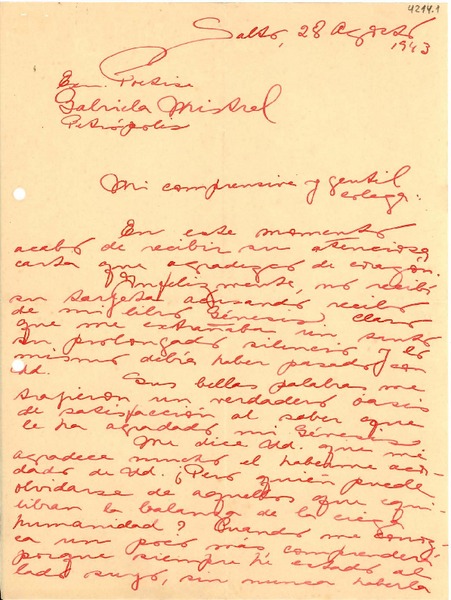 4214.1
Salto, 28 Agosto
1943
Exm. Poetisa
Gabriela Mistral
Petrópolis
Mi comprensiva y gentil
colega:
En este momento
acabo de recibir su atenciosa
carta que agradezco de corazón.
Infelizmente, no recibí
su targeta avisando recibo
de mi libro Génesis. Claro
que me extrañaba un tanto
su prolongado silencio y lo
mismo debía haber pasado con
Ud.
Sus bellas palabras me
trajeron un verdadero oasis
de satisfacción al saber que
le ha agradado mi Génesis
Me dice Ud. que me
agradece mucho el haberme acor-
dado de Ud. ¿Pero quién puede
olvidarse de aquellos que equi-
libran la balanza de la ciega
humanidad? Cuando me conoz-
ca un poco más comprenderá
porque siempre he estado al
lado suyo, sin nunca haberla